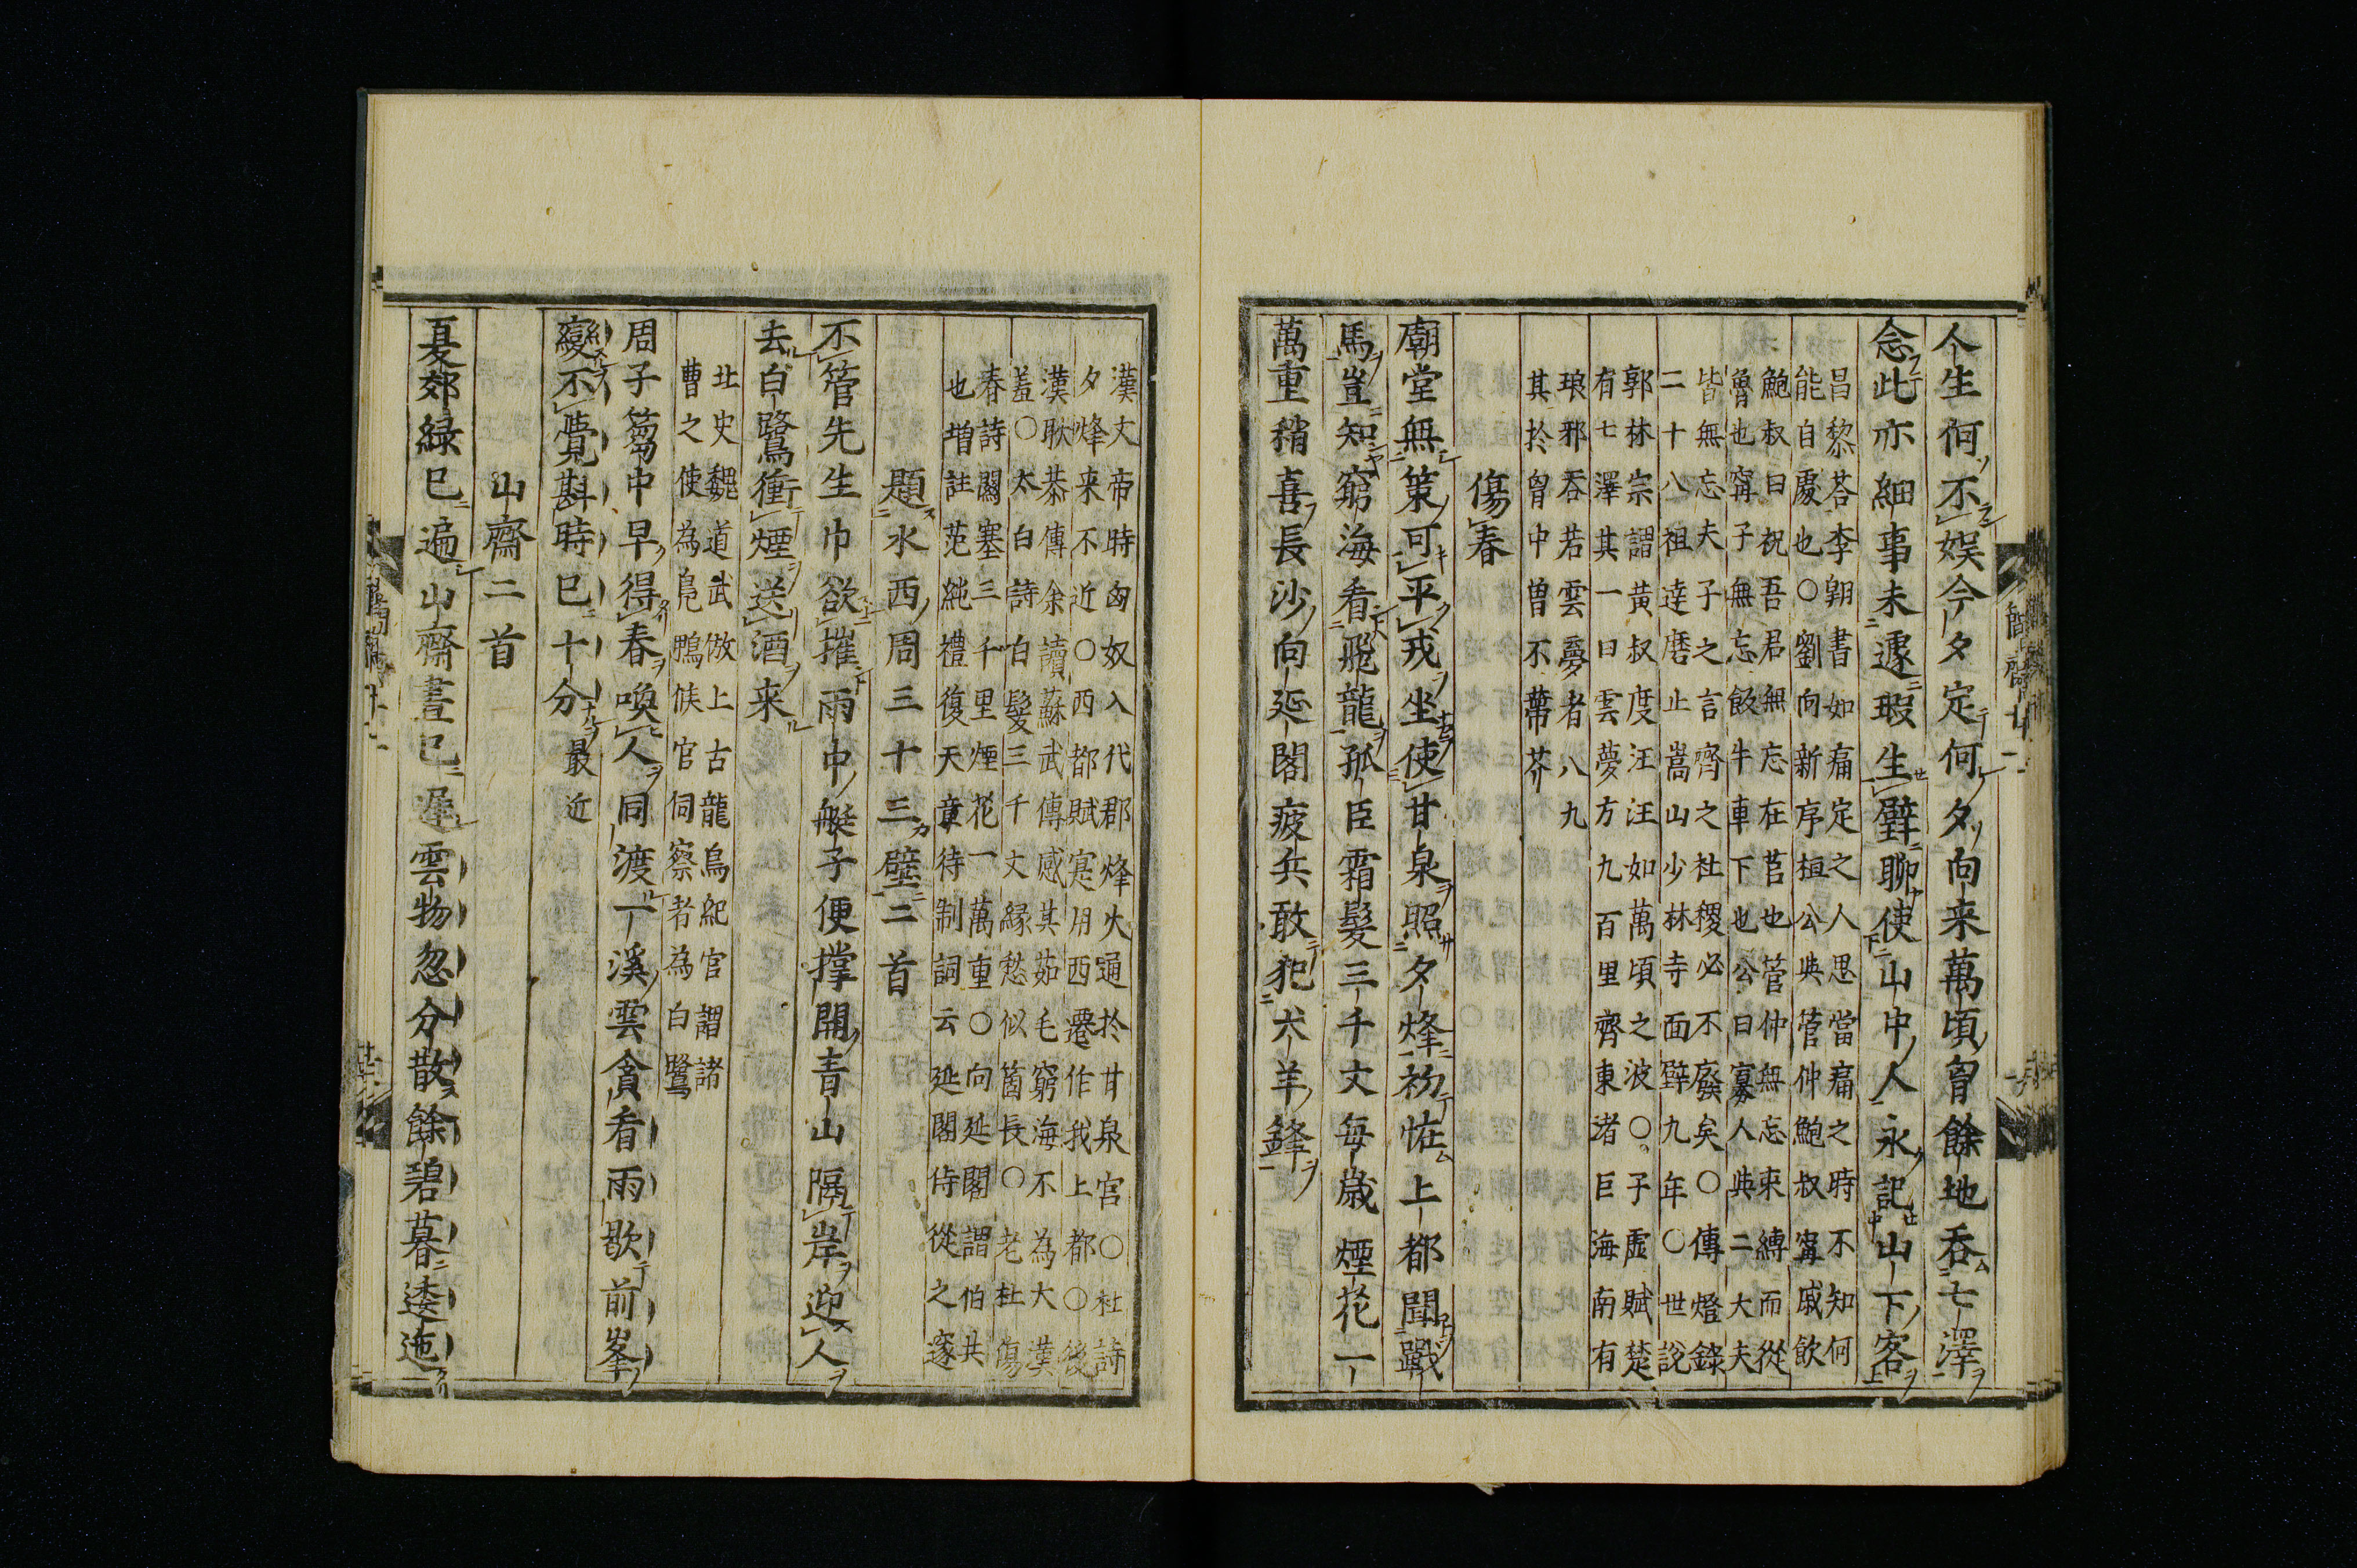 人生何不娯今夕定何夕向来萬頃胷餘地吞七澤
念此亦細事未遽瑕生璧聊使山中人永記山下客
昌黎荅李翺書如痛定之人思當痛之時不知何
能自處也○劉向新序桓公與管仲鮑叔甯戚飲
鮑叔曰祝吾君無忘在莒也管仲無忘束縛而從
魯也甯子無忘飯牛車下也公曰寡人與二大夫
皆無忘夫子之言齊之社稷必不廢矣○傳燈錄
二十八祖達磨止嵩山少林寺面壁九年○世說
郭林宗謂黃叔度汪汪如萬頃之波○子虛賦楚
有七澤其一曰雲夢方九百里齊東渚巨海南有
琅邪吞若雲夢者八九
其於胷中曽不蔕芥
傷春
廟堂無策可平戎坐使甘泉照夕烽初恠上都聞戰
馬豈知窮海看飛龍孤臣霜髮三千丈每歳煙花一
萬重稍喜長沙向延閣疲兵敢犯犬羊鋒
漢文帝時匈奴入代郡烽火通於甘泉宮○杜詩
夕烽来不近○西都賦寔用西遷作我上都○後
漢耿恭傳余讀蘇武傳感其茹毛窮海不為大漢
羞○太白詩白髮三千丈緣愁似箇長○老杜傷
春詩關塞三千里煙花一萬重○向延閣謂伯共
也增註范純禮復天章待制詞云延閣侍從之邃
題水西周三十三壁二首
不管先生巾欲摧雨中艇子便撑開青山隔岸迎人
去白鷺衝煙送酒来
北史魏道武倣上古龍鳥紀官謂諸
曹之使為鳬鴨候官伺察者為白鷺
周子篘中早得春喚人同渡一溪雲貪看雨歇前峯
變不覺斟時已十分最近
山齋二首
夏郊緑已遍山齋晝已遲雲物忽分散餘碧暮逶迤